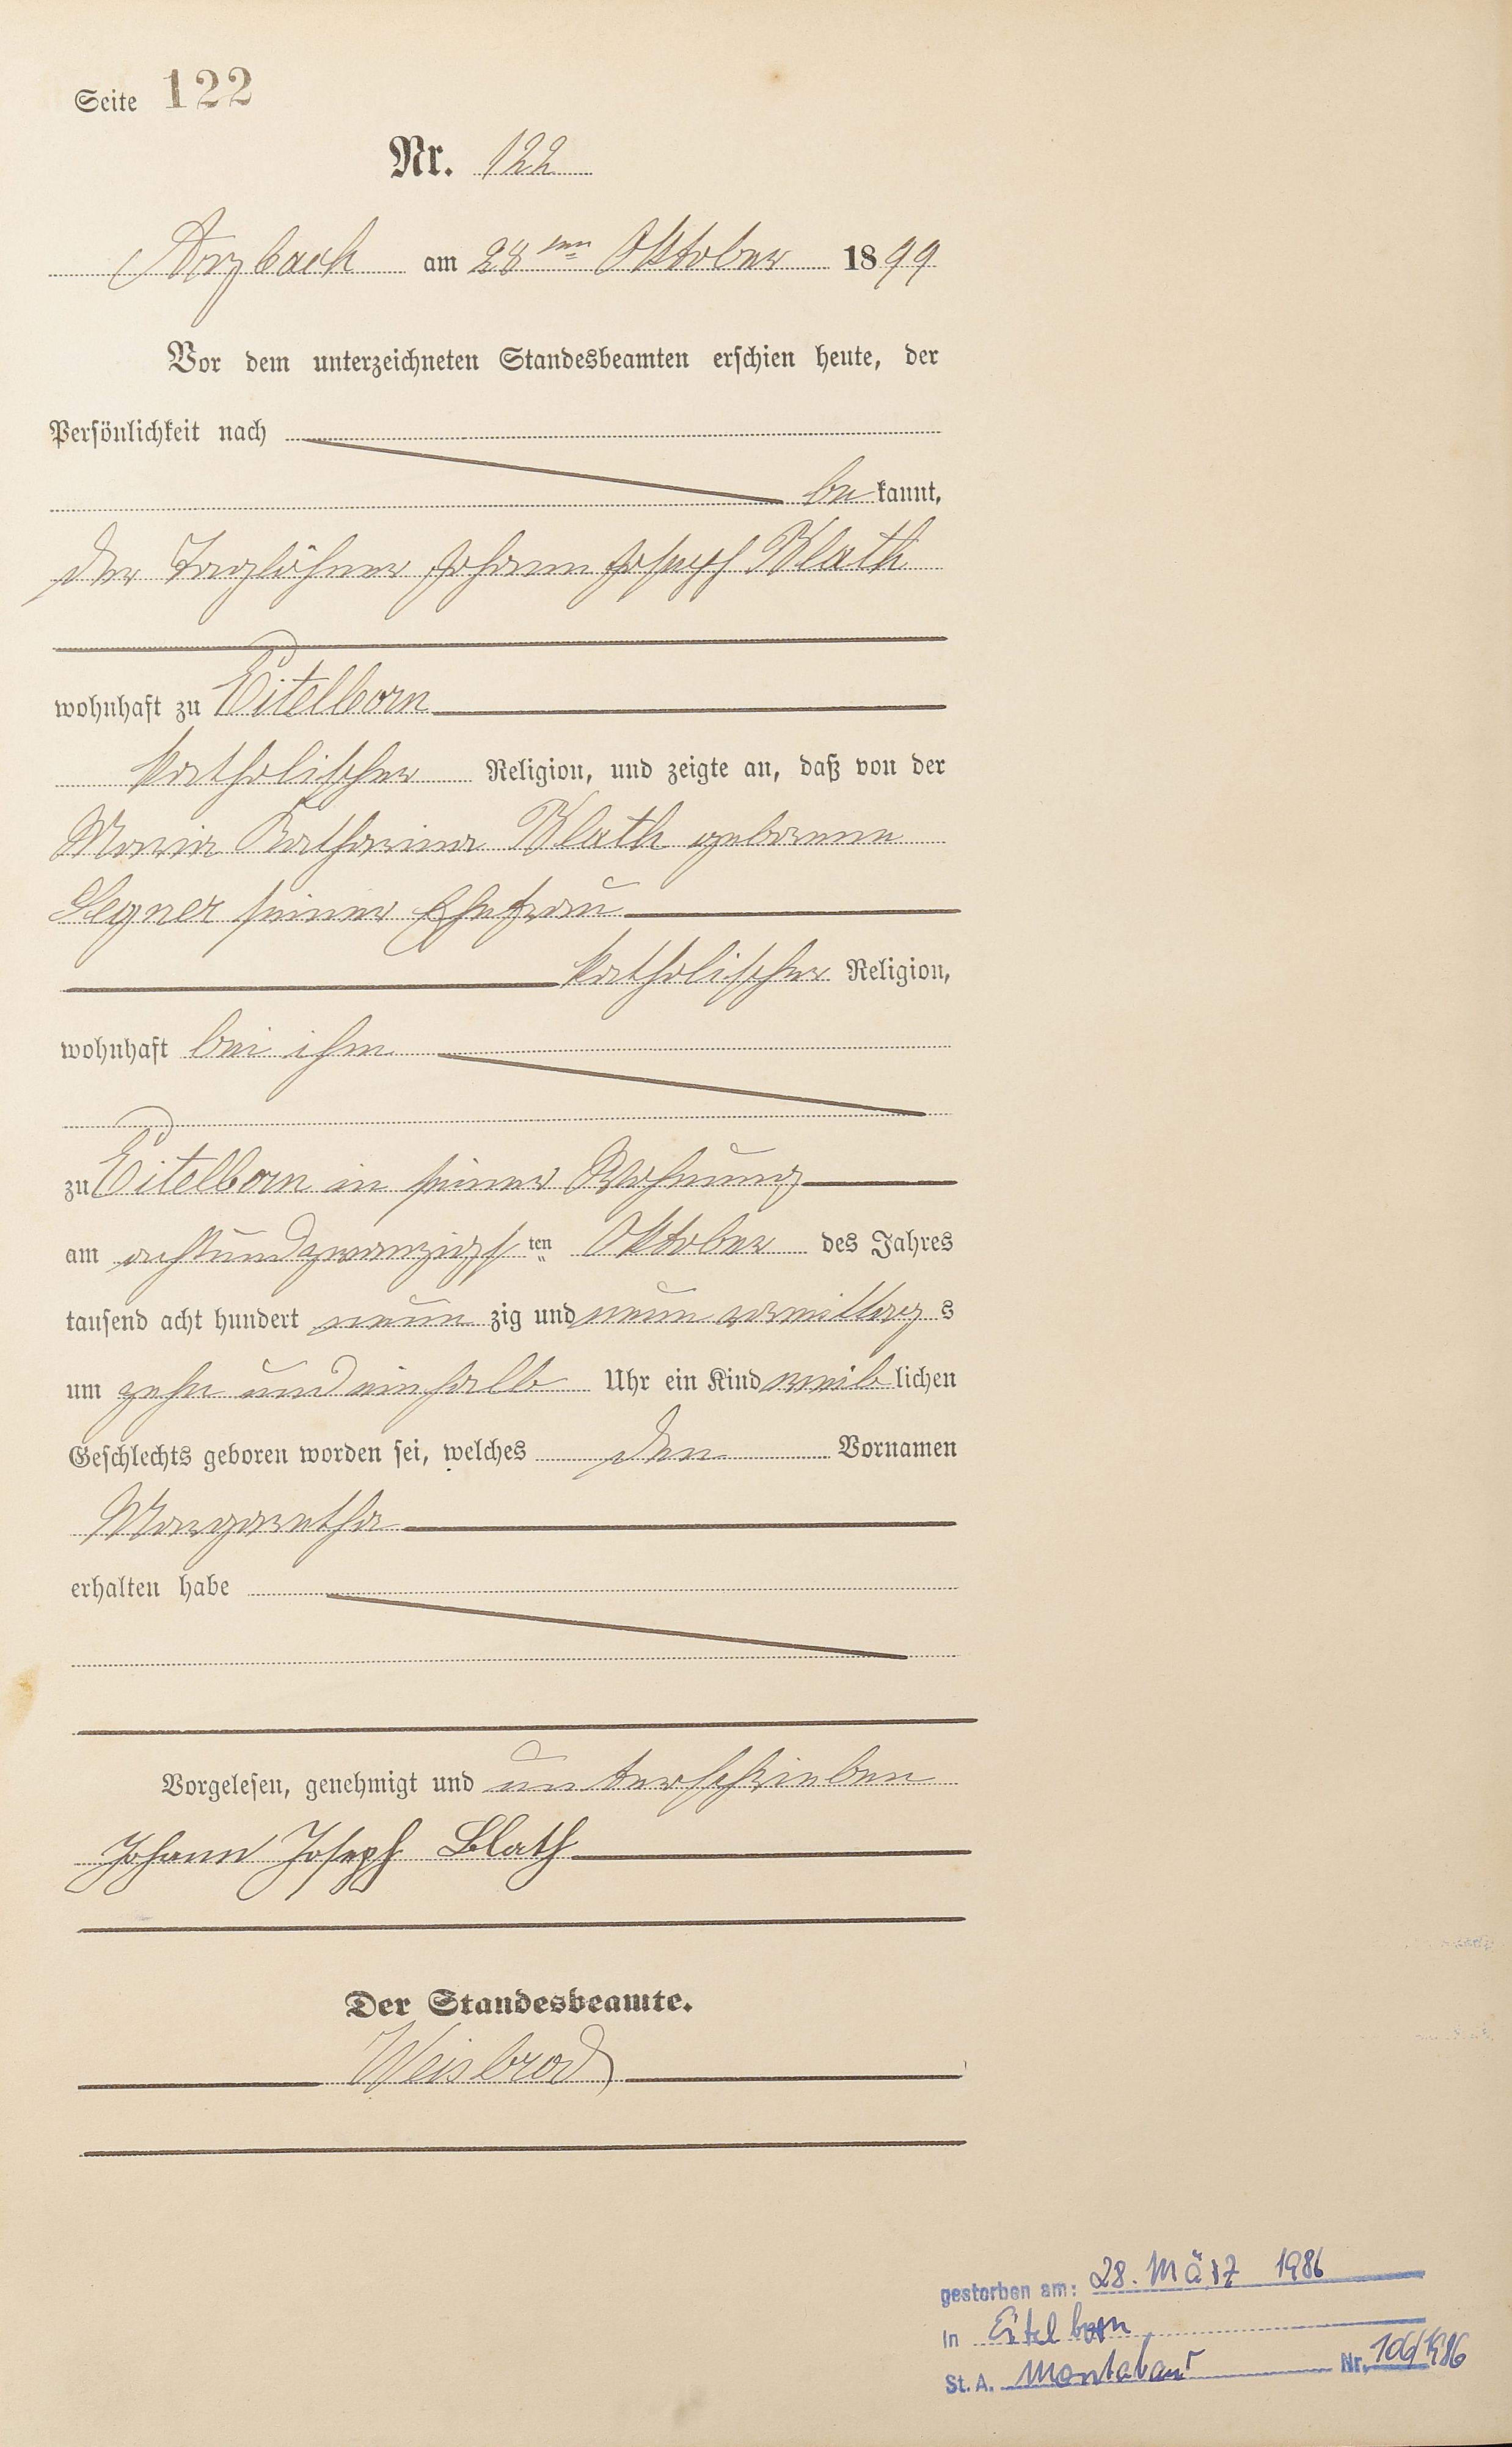 Seite 122
Nr. 122
Arzbach am 28ten Oktober 1899
Vor dem unterzeichneten Standesbeamten erschien heute, der
Persönlichkeit nach
be kannt,
der Taglöhner Johann Joseph Blath
wohnhaft zu Eitelborn
katholischer Religion, und zeigte an, daß von der
Maria Katharina Blath geborene
Legner seiner Ehefrau
katholischer Religion,
wohnhaft bei ihm
zu Eitelborn in seiner Wohnung
am achtundzwanzigs ten Oktober des Jahres
tausend acht hundert neun zig und neun vormittag s
um zehn und einhalb Uhr ein Kind weib lichen
Geschlechts geboren worden sei, welches den Vornamen
Margaretha
erhalten habe
Vorgelesen, genehmigt und unterschrieben
Johann Joseph Blath
Der Standesbeamte.
Weisbrod
gestorben am: 28. März 1986
in Eitelborn
St. A. Montabaur Nr. 106/1986